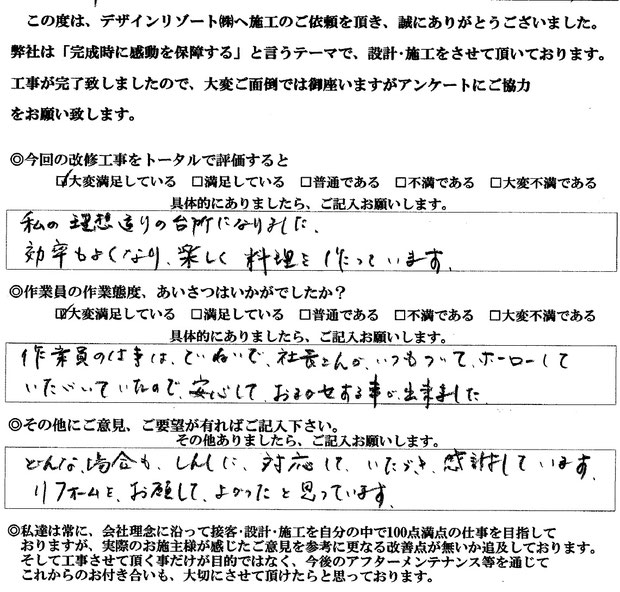 この度は、デザインリゾート㈱へ施工のご依頼を頂き、誠にありがとうございました。
弊社は「完成時に感動を保障する」と言うテーマで、設計・施工をさせて頂いております。
工事が完了致しましたので、大変ご面倒では御座いますがアンケートにご協力
をお願い致します。
◎今回の改修工事をトータルで評価すると
☑大変満足している □満足している □普通である □不満である □大変不満である
具体的にありましたら、ご記入お願いします。
私の理想通りの台所になりました、
効率もよくなり、楽しく料理を作っています。
◎作業員の作業態度、あいさつはいかがでしたか？
☑大変満足している □満足している □普通である □不満である □大変不満である
具体的にありましたら、ご記入お願いします。
作業員の仕事は、ていねいで、社長さんが、いつもついて、ホーローして
いただいていたので、安心して、おまかせする事が、出来ました
◎その他にご意見、ご要望が有ればご記入下さい。
その他ありましたら、ご記入お願いします。
どんな、場合も、しんしに、対応して、いただき、感謝しています、
リフォームを、お願して、よかったと思っています。
◎私達は常に、会社理念に沿って接客・設計・施工を自分の中で100点満点の仕事を目指して
おりますが、実際のお施主様が感じたご意見を参考に更なる改善点が無いか追及しております。
そして工事させて頂く事だけが目的ではなく、今後のアフターメンテナンス等を通じて
これからのお付き合いも、大切にさせて頂けたらと思っております。